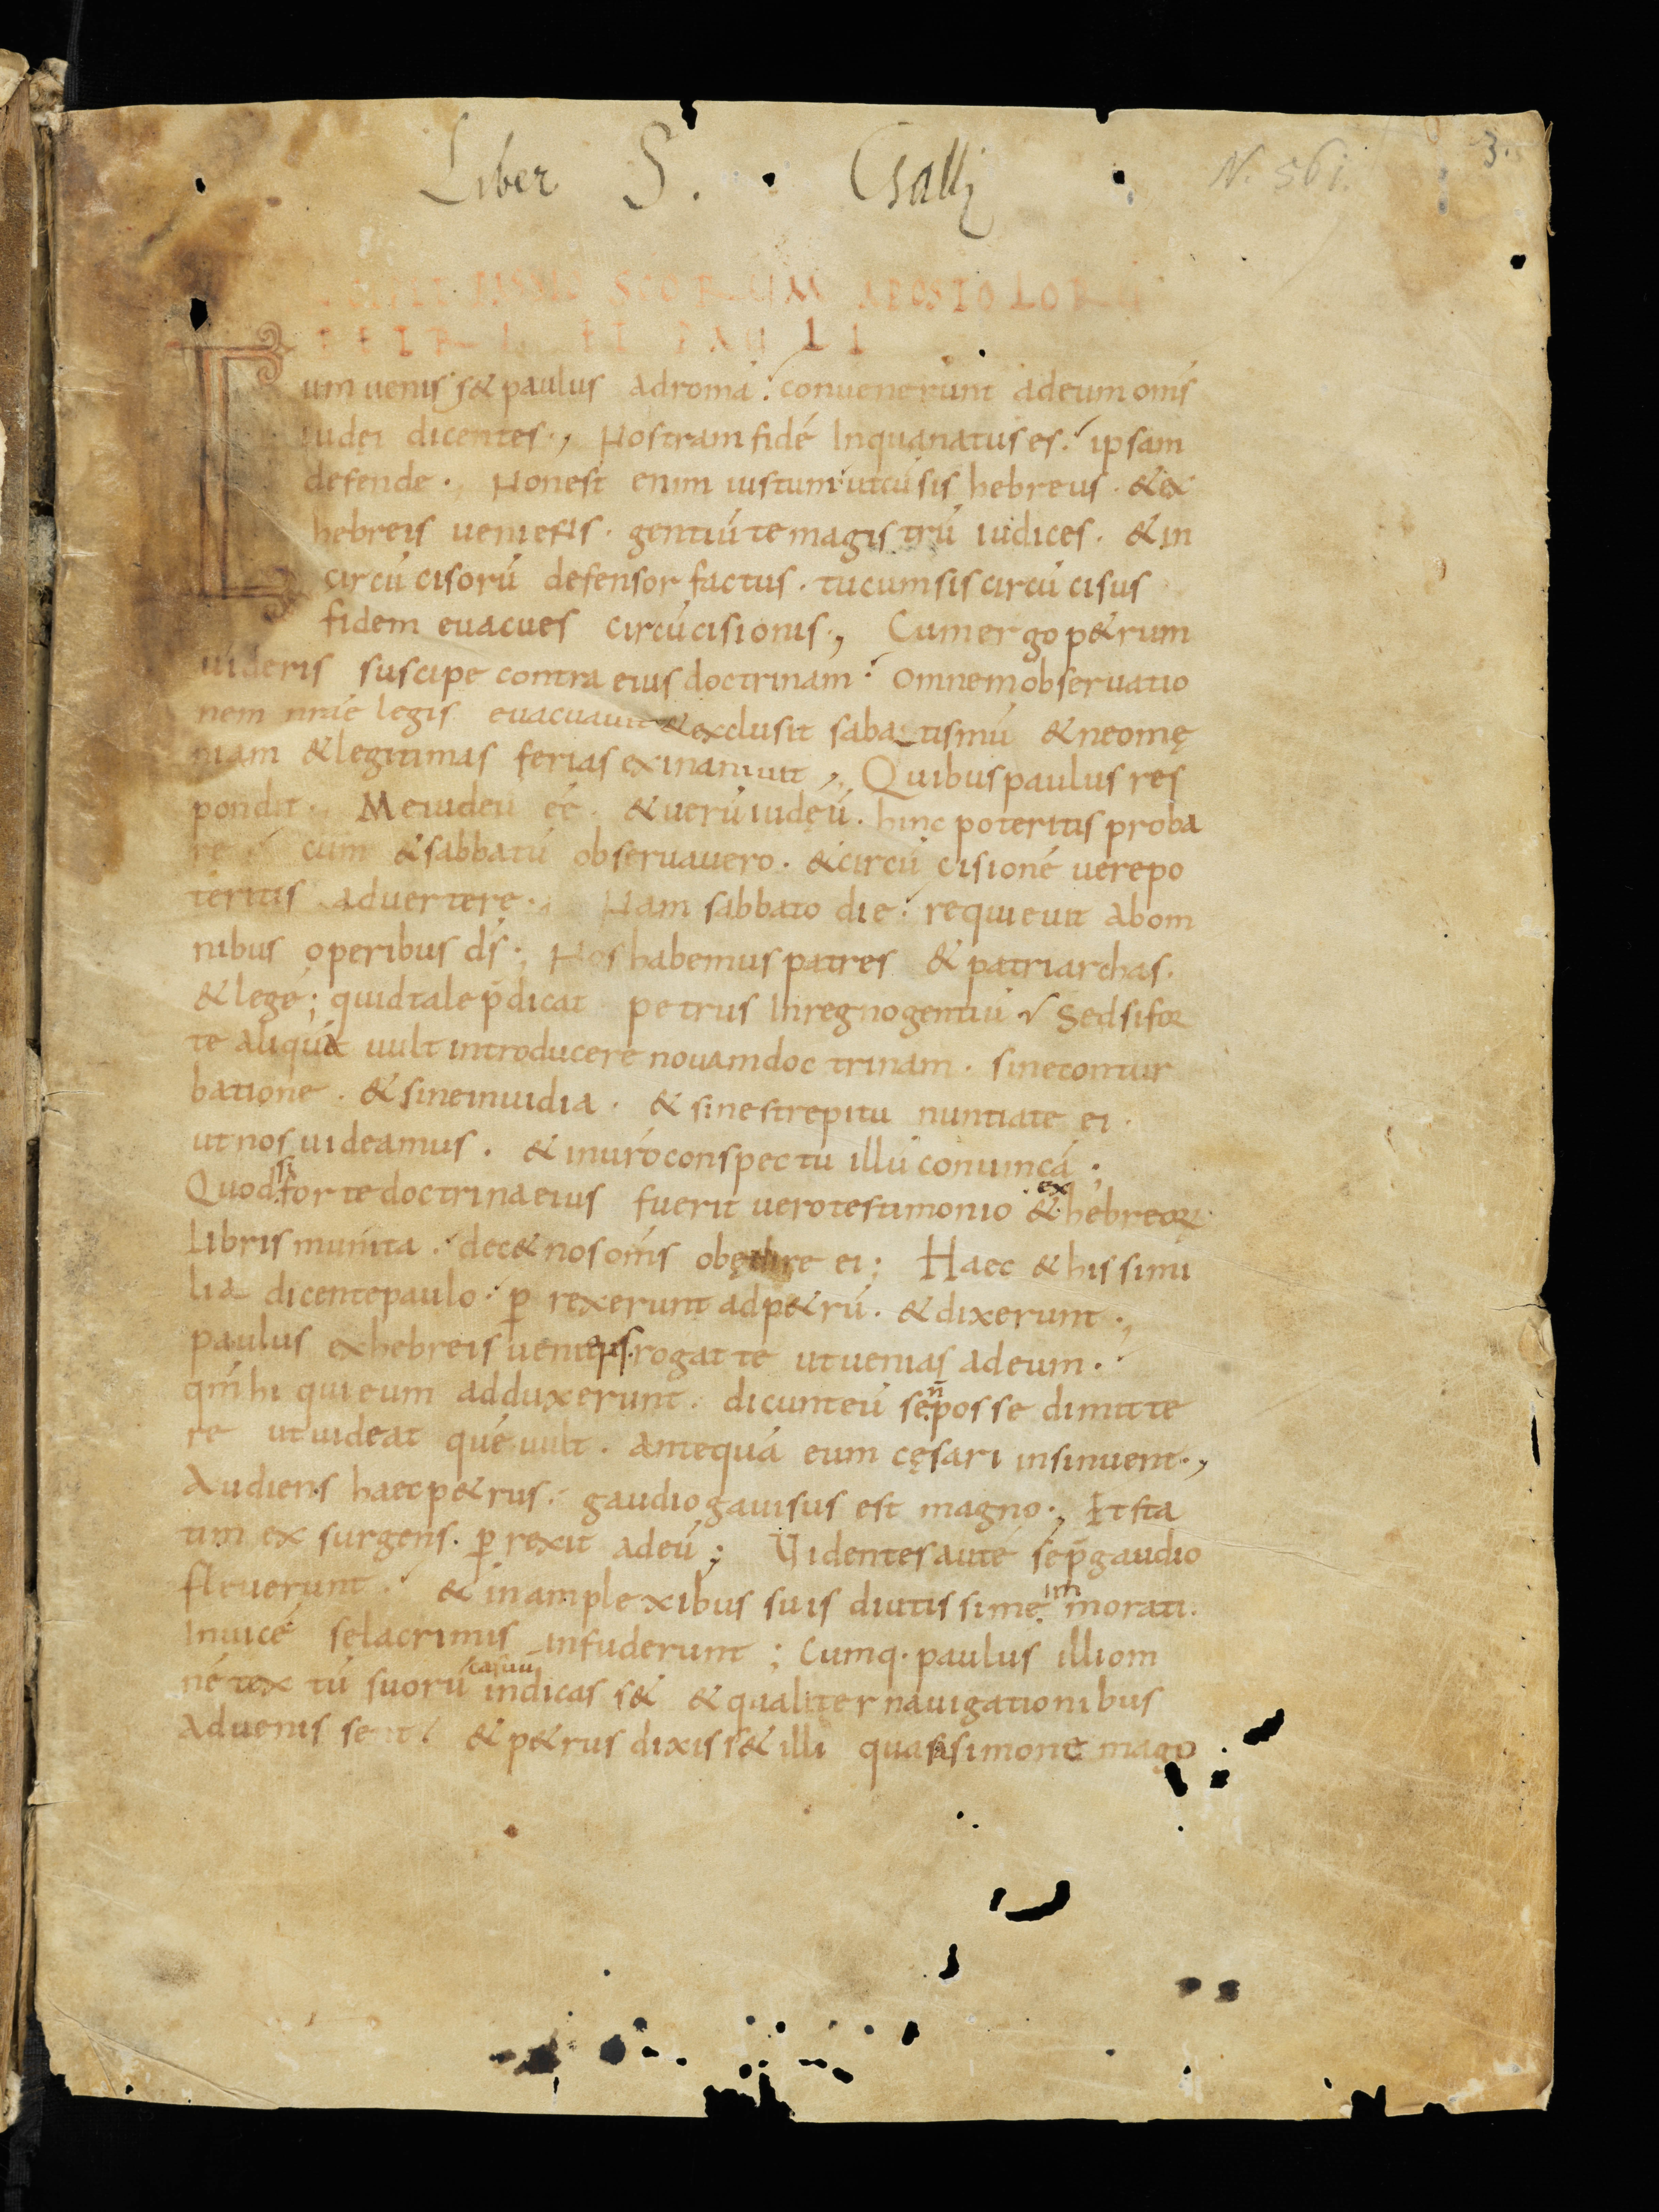 Liber S. Galli
N. 561.
3.
SCORUM APOSTOLORU
PETRI ET PAULI
Cum uenis s& paulus adromā. conuenerunt adeum oms̄
iudei dicentes., Nostram fidē Inquanatus es. ipsam
defende., Nonest enim iustum utcū sis hebreus. & ex
hebreis ueniens. gentiū te magistrū iudices. & in
circū cisorū defensor factus. tu cum sis circū cisus
fidem euacues circūcisionis., Cum ergo p&rum
uideris suscipe contra eius doctrinam. Omnem obseruatio
nem nrae legis euacuauit & exclusit sabatismū & neomę
niam & legitimas ferias exinaniuit., Quibus paulus res
pondit., Me iudeū eē. & uerū iudęū. hinc poteritis proba
re cum & sabbatū obseruauero. & circū cisionē uere po
teritis aduertere., Nam sabbato die. requieuit abom
nibus operibus ds̄., Nos habemus patres & patriarchas.
& legē; quid tale p̄dicat petrus Inregno gentiū Sed si for
te aliquā uult introducere nouam doc trinam. sine contur
batione. & sine inuidia. & sine strepitu nuntiate ei.
ut nos uideamus. & in uro conspectu illū conuincā.;
Quod si forte doctrina eius fuerit uero testimonio & ex hebreor
libris munita. dec& nos oms̄ obędire ei; Haec & his simi
lia dicente paulo. p rexerunt ad p&rū. & dixerunt.,
paulus ex hebreis uenit rogat te ut uenias ad eum.
qm̄ hi qui eum adduxerunt. dicunt eū se n̄ posse dimitte
re ut uideat quē uult. antequā eum cęsari insinuent.,
Audiens haec p&rus. gaudio gauisus est magno., Et sta
tim ex surgens. p rexit adeū; Uidentes autē se p̄ gaudio
fleuerunt. & in amplexibus suis diutissime im morati.
Inuicē se lacrimis infuderunt; Cumq. paulus illi om
nē tex tū suorū casuū indicas s& & qualiter nauigationibus
aduenis se t & p&rus dixis s& illi quas simone mago